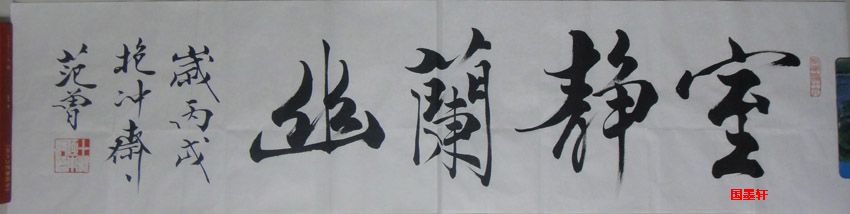 室静蘭幽
歲丙戌
抱冲齋
范曾
国墨轩